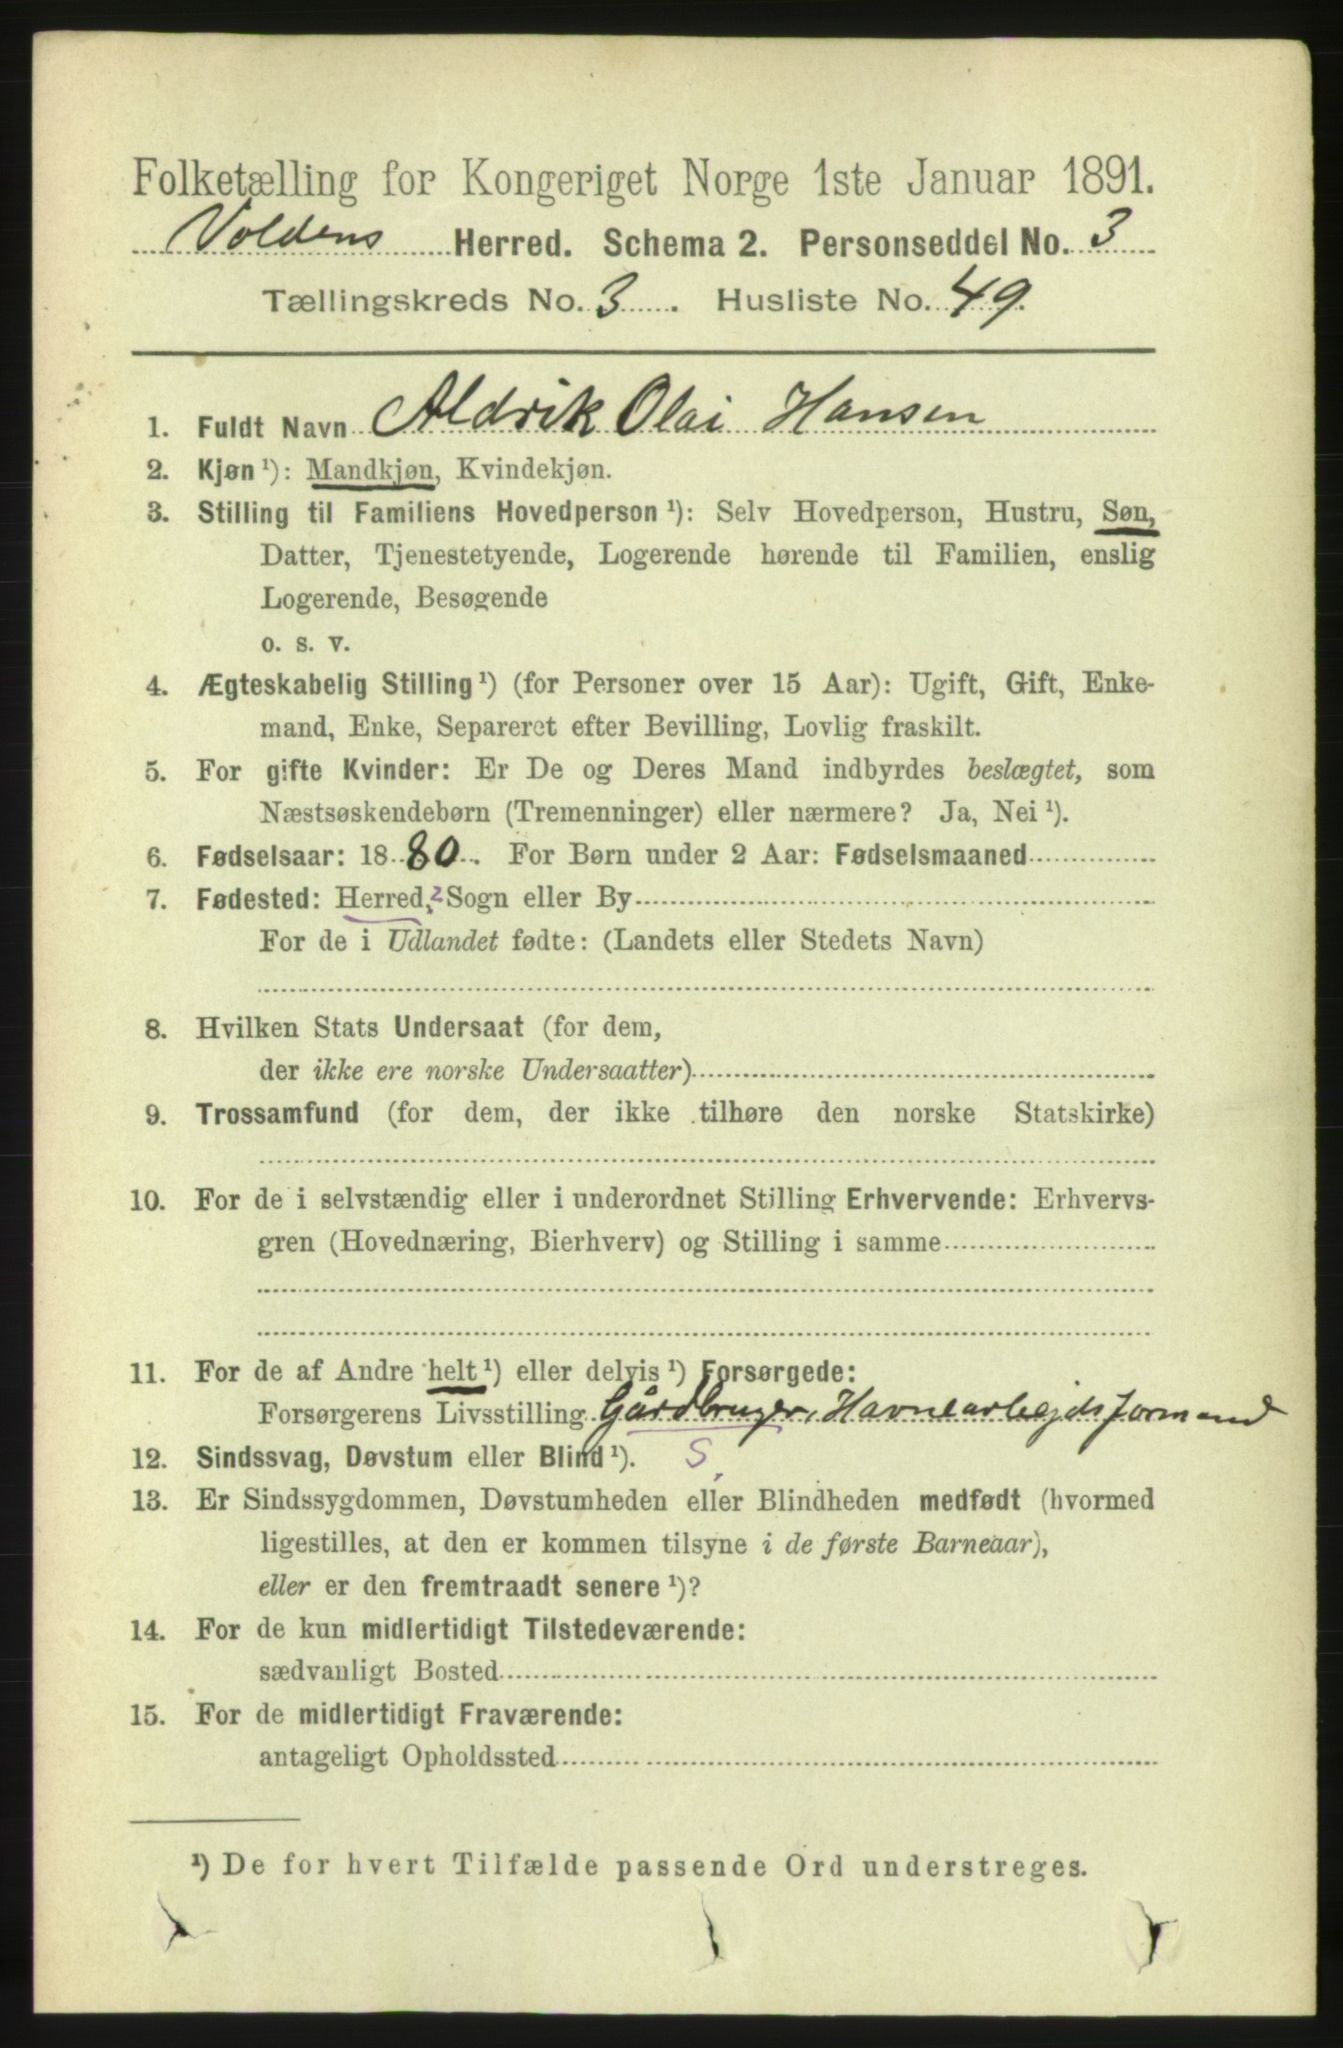 Folketælling for Kongeriget Norge 1ste Januar 1891.
Voldens Herred. Schema 2. Personseddel No. 3
Tællingskreds No. 3. Husliste No. 49.
1. Fuldt Navn Aldrik Olai Hansen
2. Kjøn ¹): Mandkjøn, Kvindekjøn.
3. Stilling til Familiens Hovedperson ¹): Selv Hovedperson, Hustru, Søn,
Datter, Tjenestetyende, Logerende hørende til Familien, enslig
Logerende, Besøgende
o. s. v.
4. Ægteskabelig Stilling ¹) (for Personer over 15 Aar): Ugift, Gift, Enke-
mand, Enke, Separeret efter Bevilling, Lovlig fraskilt.
5. For gifte Kvinder: Er De og Deres Mand indbyrdes beslægtet, som
Næstsøskendebørn (Tremenninger) eller nærmere? Ja, Nei ¹).
6. Fødselsaar: 1880. For Børn under 2 Aar: Fødselsmaaned
7. Fødested: Herred, 2 Sogn eller By
For de i Udlandet fødte: (Landets eller Stedets Navn)
8. Hvilken Stats Undersaat (for dem,
der ikke ere norske Undersaatter)
9. Trossamfund (for dem, der ikke tilhøre den norske Statskirke)
10. For de i selvstændig eller i underordnet Stilling Erhvervende: Erhvervs-
gren (Hovednæring, Bierhverv) og Stilling i samme
11. For de af Andre helt ¹) eller delvis ¹) Forsørgede:
Forsørgerens Livsstilling Gårdbruger, Havnearbejdsformand
12. Sindssvag, Døvstum eller Blind ¹). S
13. Er Sindssygdommen, Døvstumheden eller Blindheden medfødt (hvormed
ligestilles, at den er kommen tilsyne i de første Barneaar),
eller er den fremtraadt senere ¹)?
14. For de kun midlertidigt Tilstedeværende:
sædvanligt Bosted
15. For de midlertidigt Fraværende:
antageligt Opholdssted
¹) De for hvert Tilfælde passende Ord understreges.